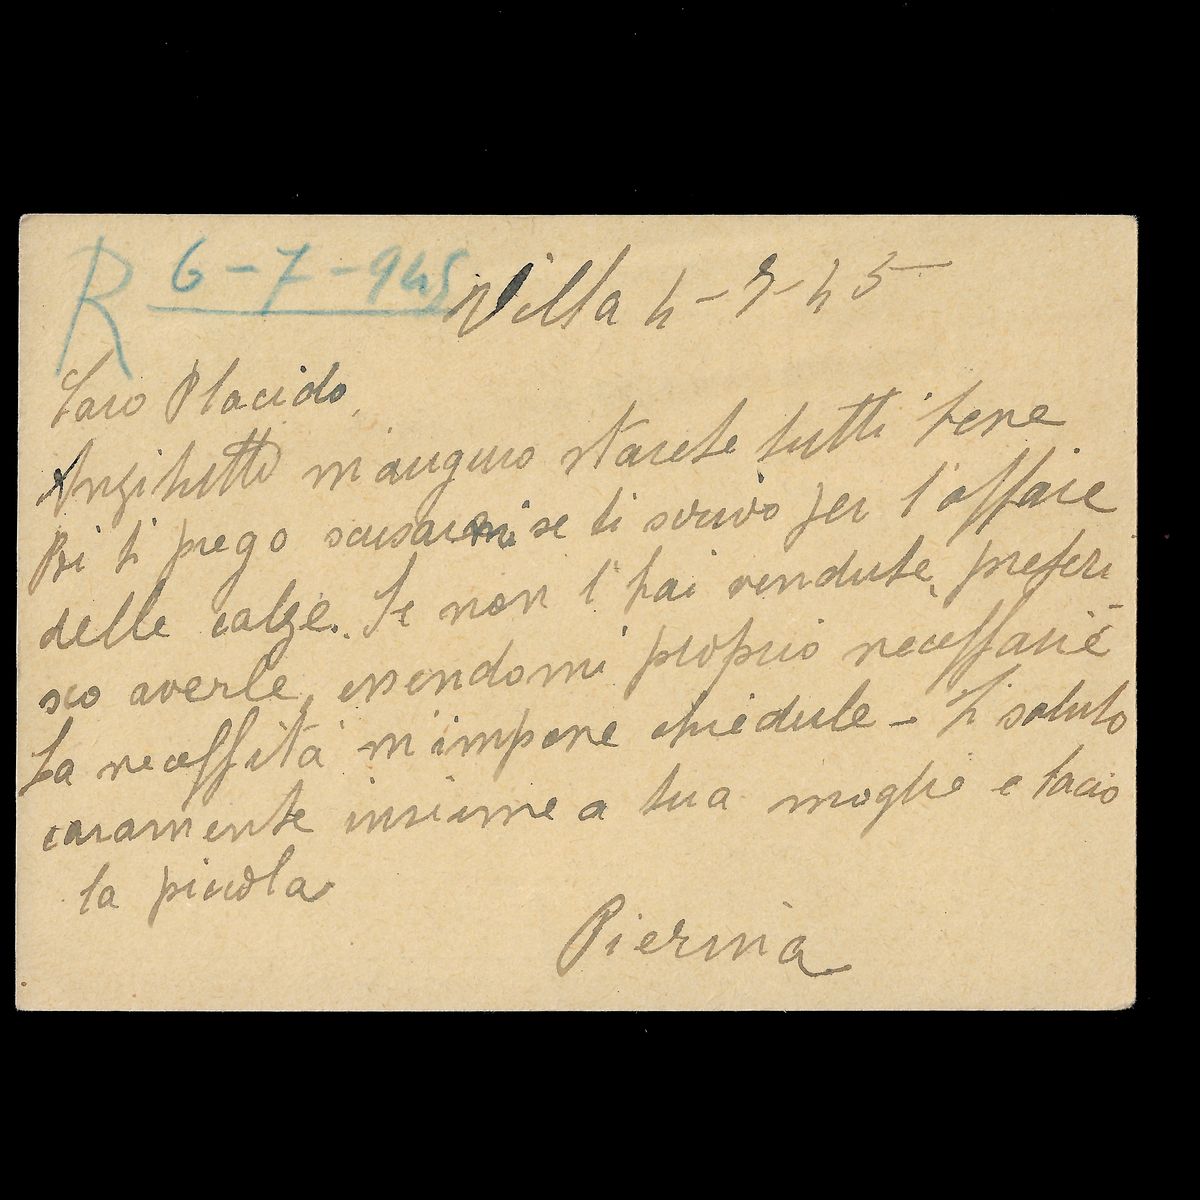 R 6-7-945
Villa 4-7-45
Caro Placido,
Anzitutto m'auguro starete tutti bene
Poi ti prego scusarmi se ti scrivo per l'affare
delle calze. Se non l'hai vendute, preferi
sco averle, essendomi proprio necessarie
La necessità m'impone chiedule - Ti saluto
caramente insieme a tua moglie e bacio
la piccola
Pierina